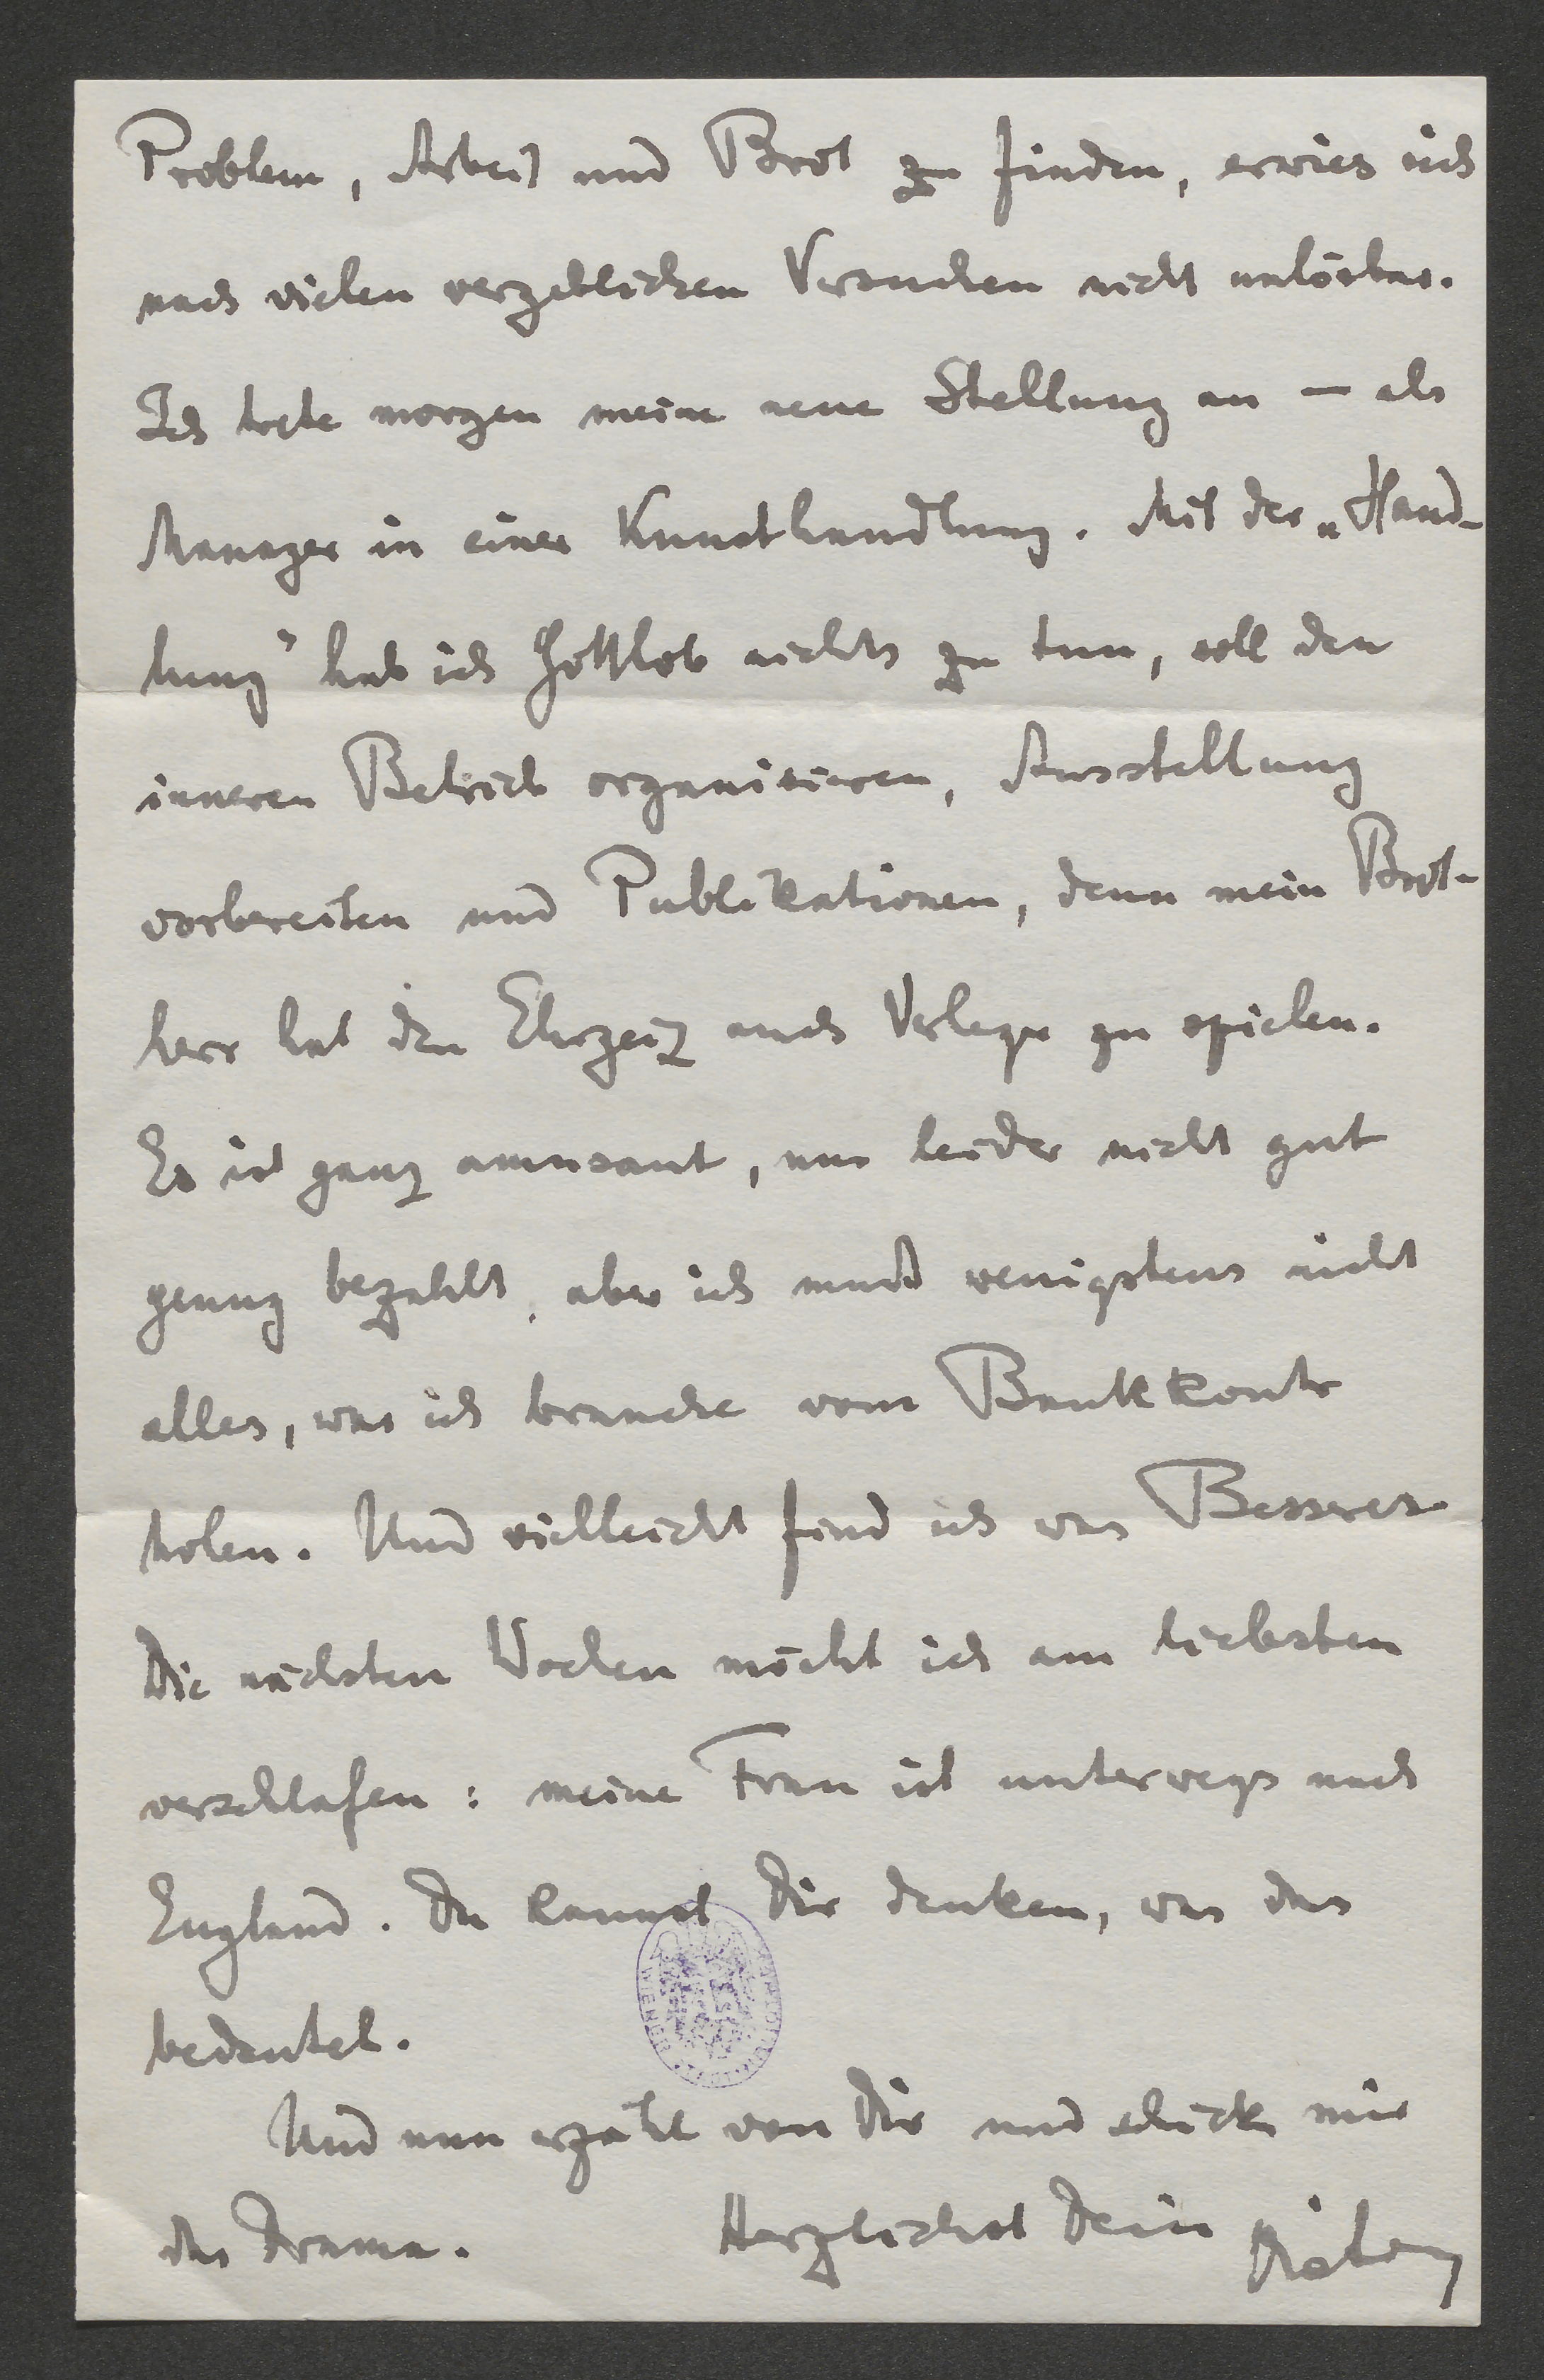 Problem, Arbeit und Brot zu finden, erwies sich
nach vielen vergeblichen Versuchen nicht unlösbar.
Ich trete morgen meine neue Stellung an — als
Manager in einer Kunsthandlung. Mit der „Hand-
lung" hab ich Gottlob nichts zu tun, soll den
inneren Betrieb organisieren, Ausstellung
vorbereiten und Publikationen, denn mein Brot-
herr hat den Ehrgeiz auch Verleger zu spielen.
Es ist ganz amusant, nur leider nicht gut
genug bezahlt, aber ich muß wenigstens nicht
alles, was ich brauche vom Bankkonto
holen. Und vielleicht find ich was Besseres.
Die nächsten Wochen möcht ich am liebsten
verschlafen: meine Frau ist unterwegs nach
England. Du kannst Dir denken, was das
bedeutet.
Und nun erzähl von Dir und schick mir
das Drama. Herzlichst Dein
WIENER